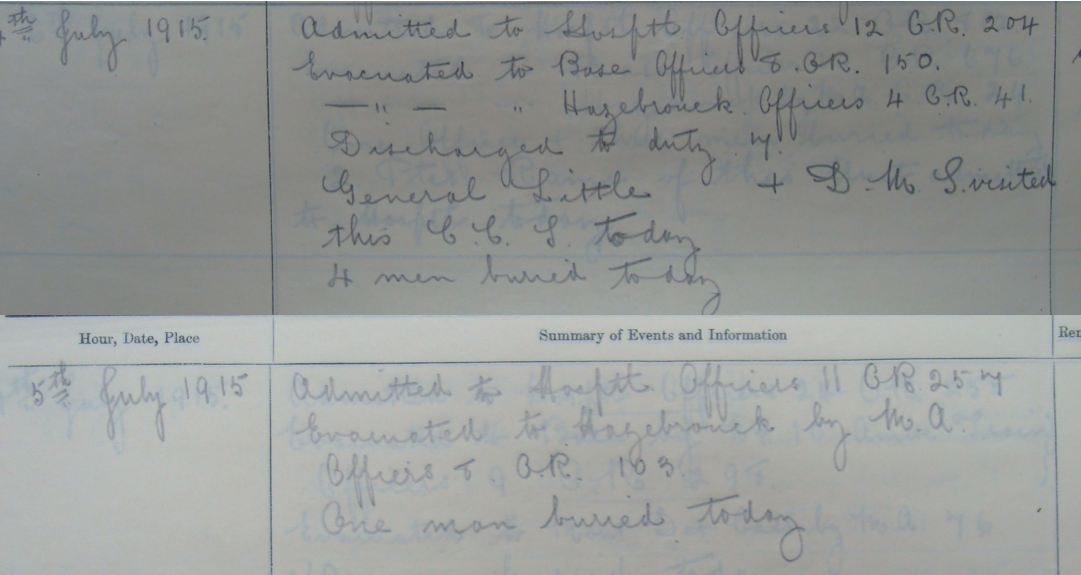 4th July 1915. Admitted to Hosptl Officers 12 O.R. 204
Evacuated to Base Officers 8. O.R. 150.
—"— " Hazebrouck Officers 4 O.R. 41.
Discharged to duty 7.
General Little + D.M.S. visited
this C.C.S. today
4 men buried today
Hour, Date, Place Summary of Events and Information
5th July 1915 Admitted to Hosptl Officers 11 O.R. 257
Evacuated to Hazebrouck by M.A.
Officers 8 O.R. 163.
One man buried today